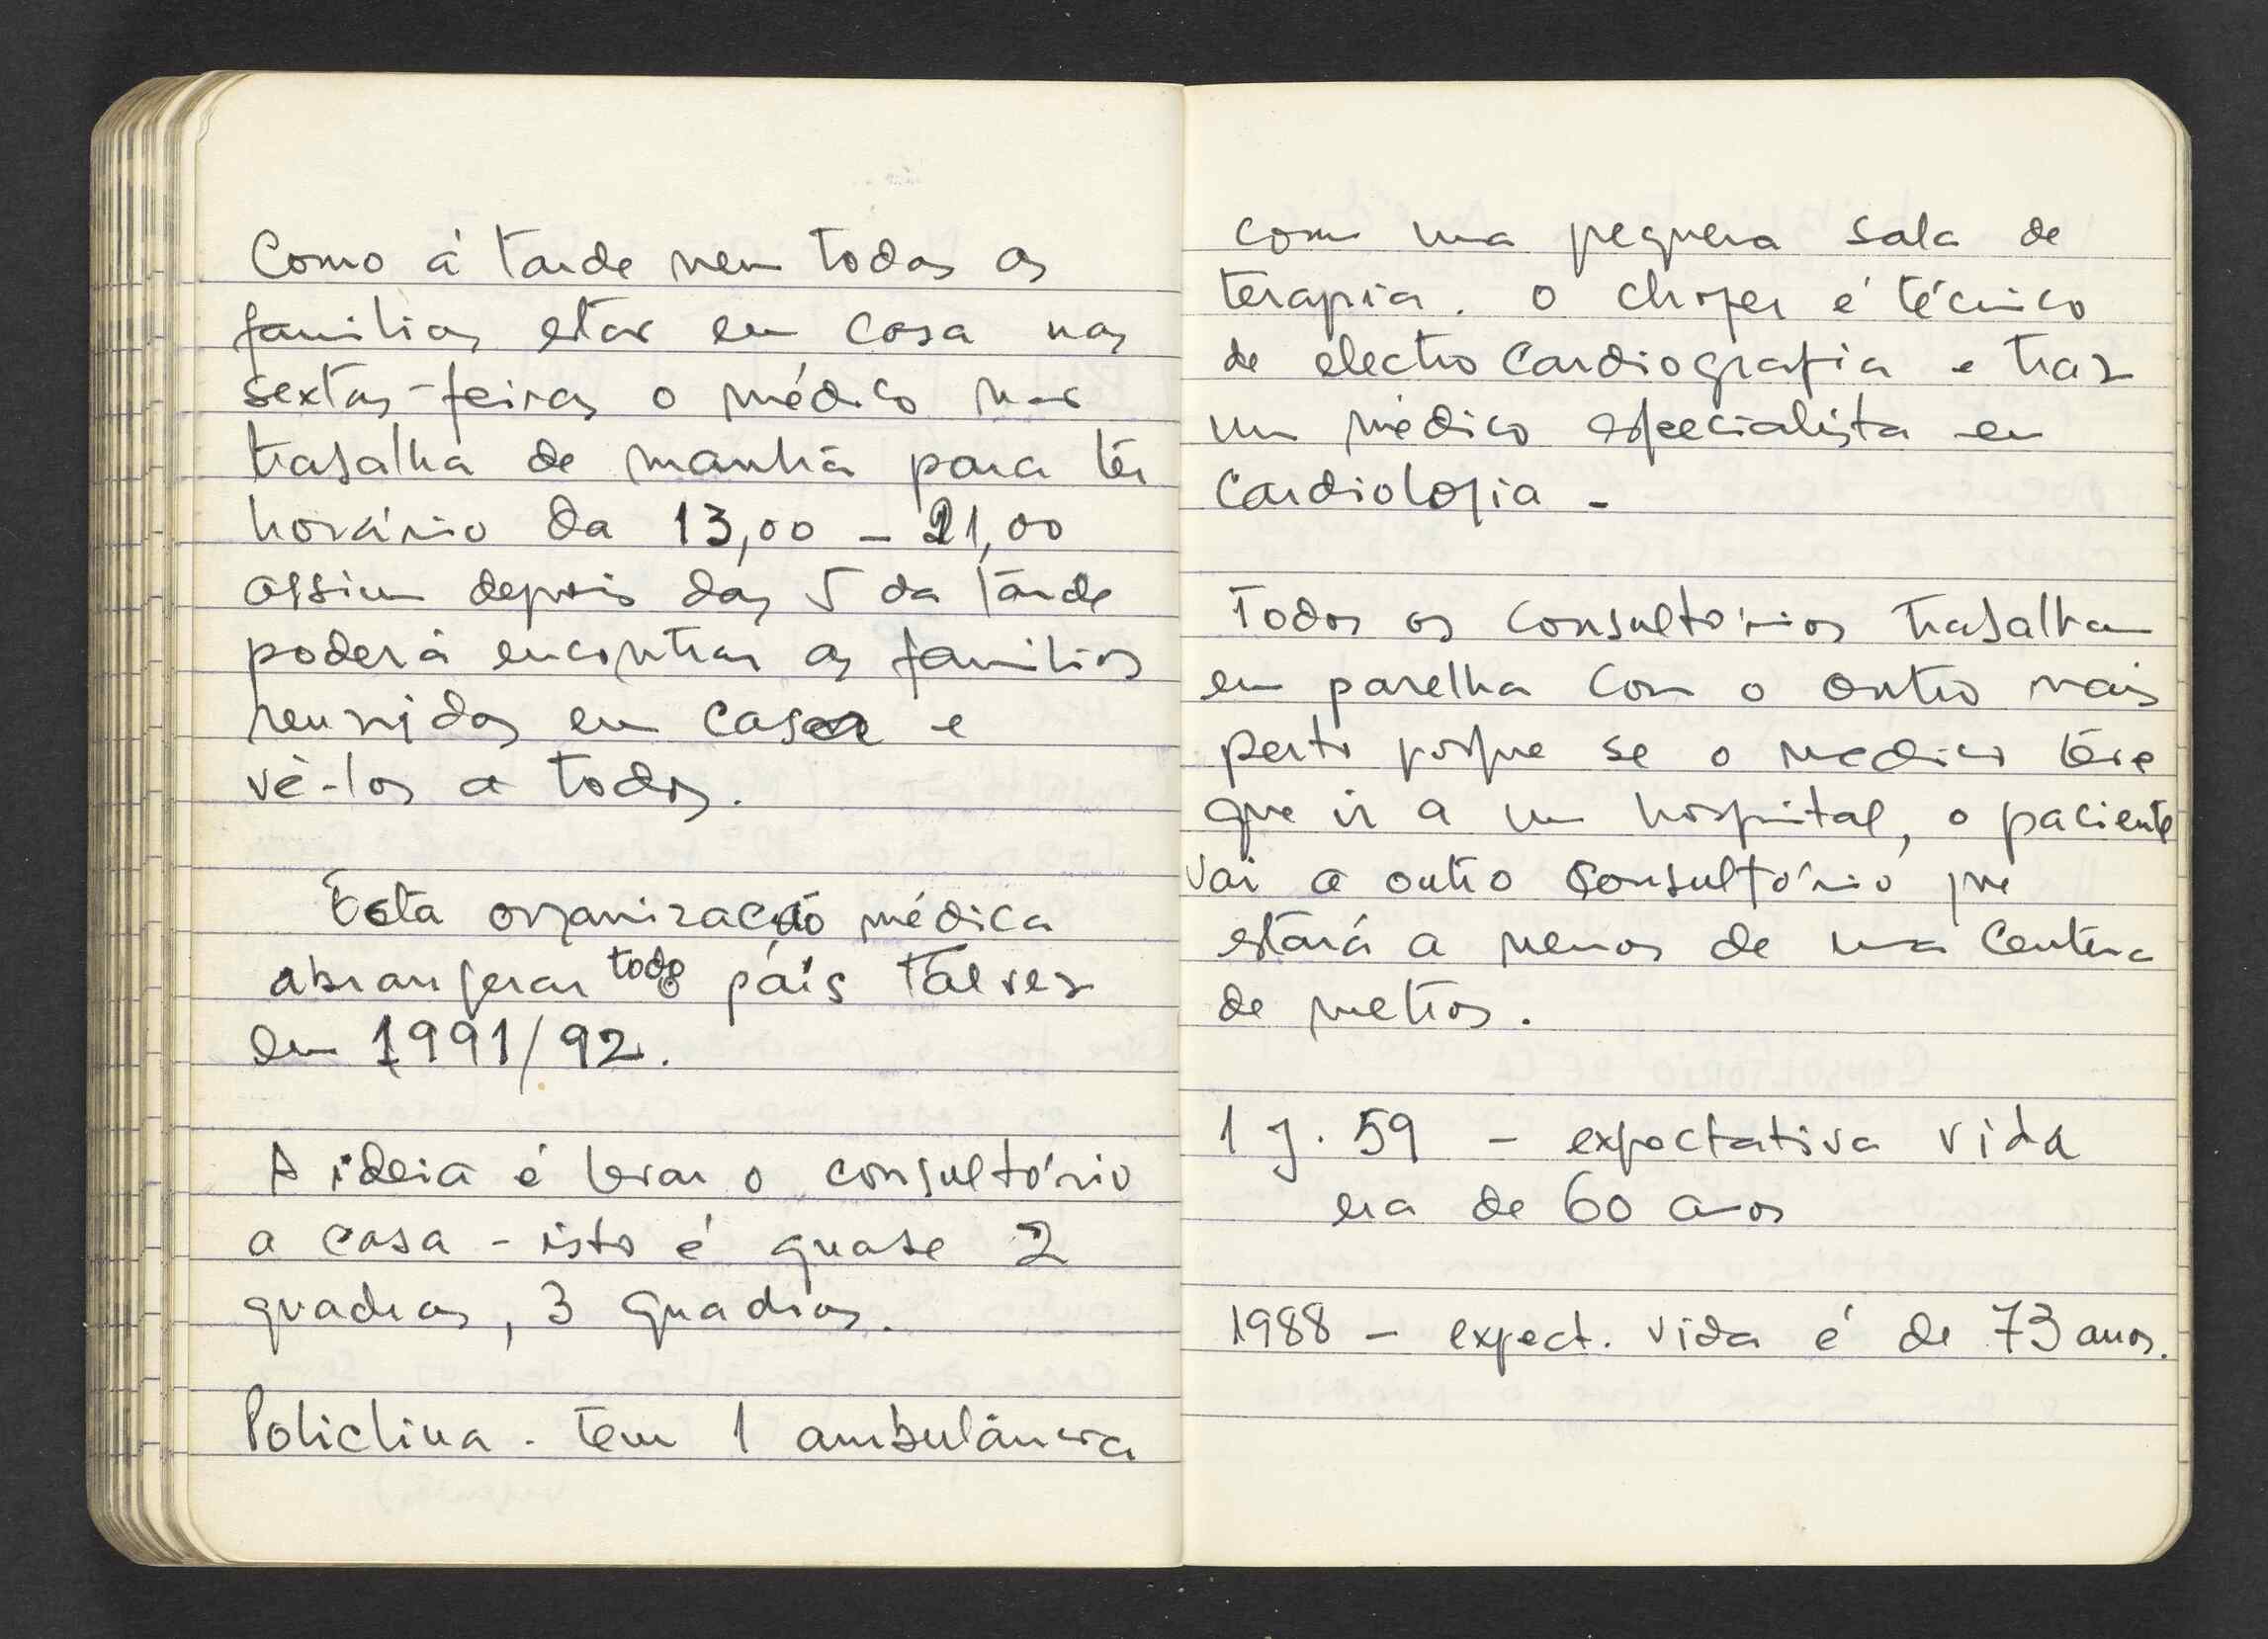 Como á tarde nem todas as
familias estão em casa nas
sextas-feiras o médico não
trabalha de manhã para têr
horário da 13,00 - 21,00
assim depois das 5 da tarde
poderá encontrar as familias
reunidas em casa e
vê-los a todos.
Esta organização médica
abranjerar todo país talvez
em 1991/92.
A ideia é levar o consultório
a casa - isto é quase 2
quadras, 3 quadras.
Policlina. tem 1 ambulância
com uma pequena sala de
terapia. O chofer é técnico
de electro cardiografia e traz
um médico especialista em
Cardiologia -
Todos os consultórios trabalham
em parelha com o outro mais
perto porque se o medico têve
que ir a um hospital, o paciente
vai a outro consultório que
estará a menos de uma centena
de metros.
1 J. 59 - expectativa vida
era de 60 anos
1988 - expect. vida é de 73 anos.